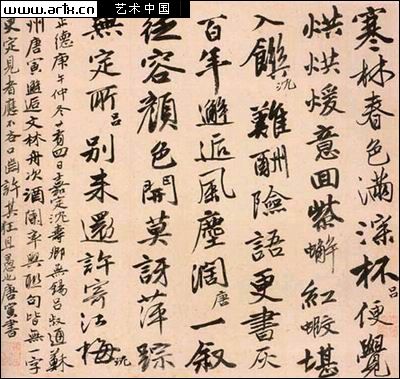 www.artx.cn 艺术中国
寒林春色滿深杯吕便覺
烘烘煖意回紫蠏紅蝦堪
入饌沈難酬險語更書灰
百年邂逅風塵闊唐一叙
從容顏色開莫訝萍踪
無定所吕別來還許寄江梅沈
正德庚午仲冬廿有四日嘉定沈壽卿無錫吕叔通蘇
州唐寅邂逅文林舟次酒闌率興聯句皆無一字
更定見者應不吝口齒許其狂且愚也唐寅書